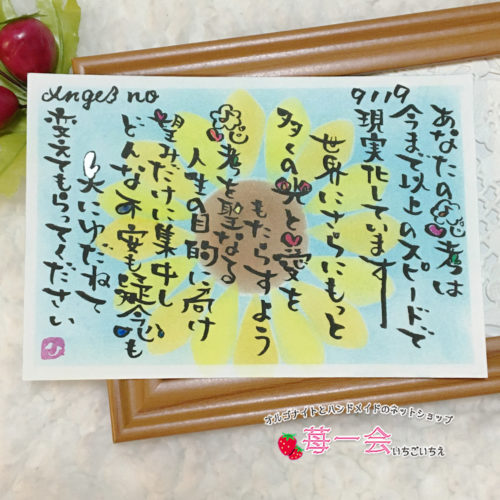 Angel no
9119
あなたの思考は
今まで以上のスピードで
現実化しています
世界にさらにもっと
多くの光と愛を
もたらすよう
思考を聖なる
人生の目的に向け
望みだけに集中し
どんな不安も疑念も
天にゆだねて
変えてもらってください
オルゴナイトとハンドメイドのネットショップ
苺一会いちごいちえ